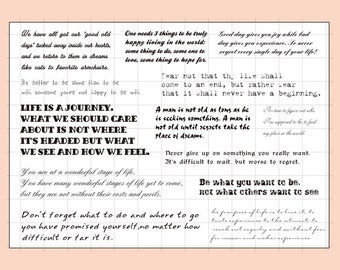 We have all got our "good old
days" tucked away inside our hearts,
and we return to them in dreams
like cats to favorite armchairs.
One needs 3 things to be truly
happy living in the world:
some thing to do, some one to
love, some thing to hope for.
Good day gives you joy while bad
day gives you experience. So never
regret every single day of your life!
It's better to be alone than to be
with someone you're not happy to be with.
Fear not that thy life shall
come to an end, but rather fear
that it shall never have a beginning.
LIFE IS A JOURNEY.
WHAT WE SHOULD CARE
ABOUT IS NOT WHERE
IT'S HEADED BUT WHAT
WE SEE AND HOW WE FEEL.
A man is not old as long as he
is seeking something. A man is
not old until regrets take the
place of dreams.
It's time to figure out who
I'm supposed to be, to find
my place in the world.
Never give up on something you really want.
It's difficult to wait, but worse to regret.
You are at a wonderful stage of life.
You have many wonderful stages of life yet to come,
but they are not without their costs and perils.
Be what you want to be,
not what others want to see
Don't forget what to do and where to go
you have promised yourself, no matter how
difficult or far it is.
The purpose of life is to live it, to
taste experience to the utmost, to
reach out eagerly and without fear
for newer and richer experience.